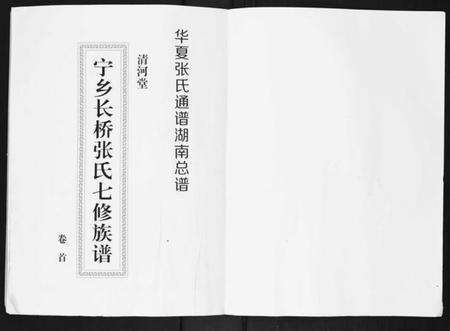 华夏张氏通谱湖南总谱
清河堂
宁乡长桥张氏七修族谱
卷首